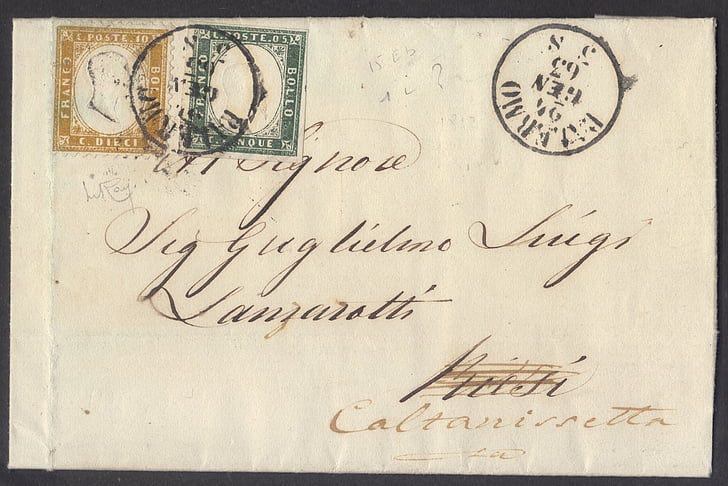 C. POSTE. 10
FRANCO
BOLLO
C. DIECI
C. POSTE. 05
FRANCO
BOLLO
C. CINQUE
PALERMO
GEN
63
PALERMO
GEN
63
5 S
Al Signore
Sig Guglielmo Luigi
Lanzarotti
Caltanissetta